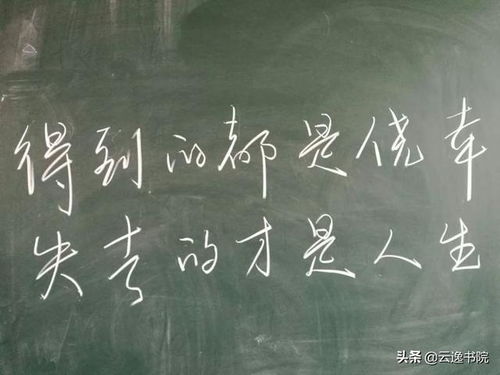 得到的都是侥幸
失去的才是人生
头条 @云逸书院